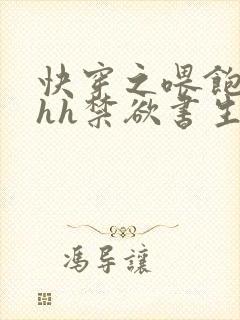 快穿之喂飽
hh禁欲書生
馮导讓